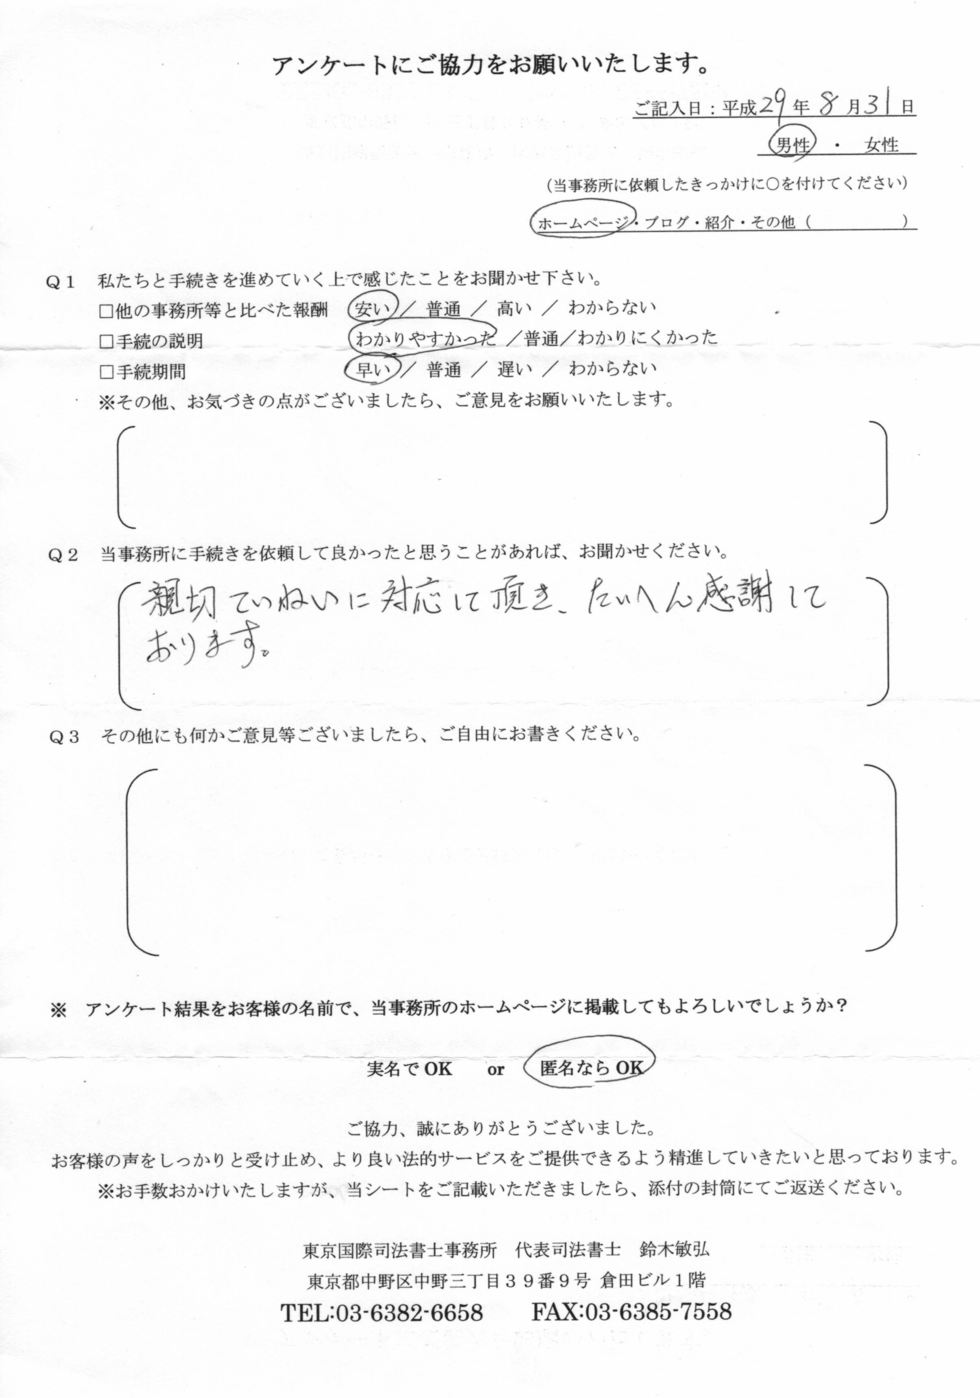 アンケートにご協力をお願いいたします。
ご記入日：平成29年8月31日
男性 ・ 女性
（当事務所に依頼したきっかけに○を付けてください）
ホームページ・ブログ・紹介・その他（　　　　　）
Ｑ１　私たちと手続きを進めていく上で感じたことをお聞かせ下さい。
□他の事務所等と比べた報酬　安い ／ 普通 ／ 高い ／ わからない
□手続の説明　わかりやすかった ／普通／わかりにくかった
□手続期間　早い ／ 普通 ／ 遅い ／ わからない
※その他、お気づきの点がございましたら、ご意見をお願いいたします。
Ｑ２　当事務所に手続きを依頼して良かったと思うことがあれば、お聞かせください。
親切ていねいに対応して頂き、たいへん感謝して
おります。
Ｑ３　その他にも何かご意見等ございましたら、ご自由にお書きください。
※　アンケート結果をお客様の名前で、当事務所のホームページに掲載してもよろしいでしょうか？
実名でOK　or　匿名ならOK
ご協力、誠にありがとうございました。
お客様の声をしっかりと受け止め、より良い法的サービスをご提供できるよう精進していきたいと思っております。
※お手数おかけいたしますが、当シートをご記載いただきましたら、添付の封筒にてご返送ください。
東京国際司法書士事務所　代表司法書士　鈴木敏弘
東京都中野区中野三丁目３９番９号 倉田ビル１階
TEL:03-6382-6658　FAX:03-6385-7558